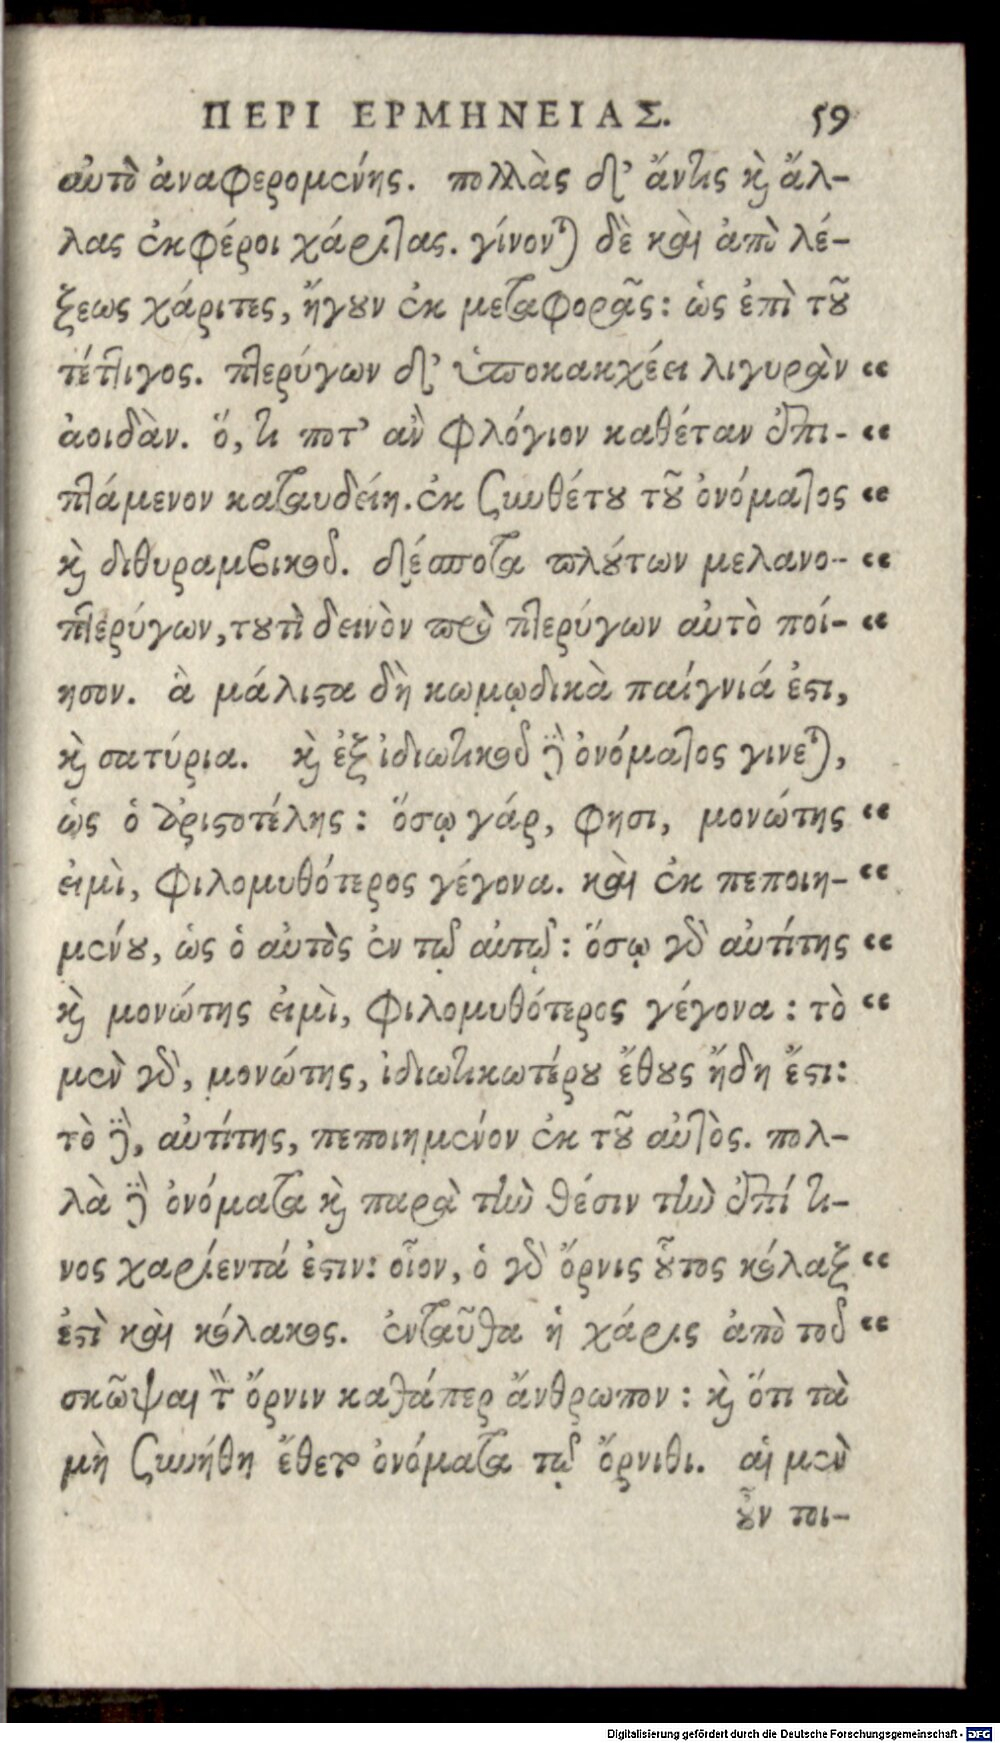 ΠΕΡΙ ΕΡΜΗΝΕΙΑΣ. 59
αὐτὸ ἀναφερομένης. πολλὰς δ᾽ ἄν τις καὶ ἄλ-
λας ἐκφέροι χάριτας. γίνονται δὲ καὶ ἀπὸ λέ-
ξεως χάριτες, ἤγουν ἐκ μεταφορᾶς: ὡς ἐπὶ τοῦ
τέττιγος. πτερύγων δ᾽ ὑποκακχέει λιγυρὰν “
ἀοιδὰν. ὅ, τι ποτ᾽ ἂν φλόγιον καθέταν ἐπι- “
πτάμενον καταυδείη. ἐκ συνθέτου τοῦ ὀνόματος “
καὶ διθυραμβικοῦ. δέσποτα πλούτων μελανο- “
πτερύγων, τουτὶ δεινὸν πρὸ πτερύγων αὐτὸ ποί- “
ησον. ἃ μάλιστα δὴ κωμῳδικὰ παίγνιά ἐστι,
καὶ σατύρια. καὶ ἐξ ἰδιωτικοῦ δὲ ὀνόματος γίνεται,
ὡς ὁ Ἀριστοτέλης: ὅσῳ γάρ, φησι, μονώτης “
εἰμὶ, φιλομυθότερος γέγονα. καὶ ἐκ πεποιη- “
μένου, ὡς ὁ αὐτὸς ἐν τῷ αὐτῷ: ὅσῳ γὰρ αὐτίτης “
καὶ μονώτης εἰμὶ, φιλομυθότερος γέγονα: τὸ “
μὲν γὰρ, μονώτης, ἰδιωτικωτέρου ἔθους ἤδη ἔστι:
τὸ δὲ, αὐτίτης, πεποιημένον ἐκ τοῦ αὐτὸς. πολ-
λὰ δὲ ὀνόματα καὶ παρὰ τὴν θέσιν τὴν ἐπί τι-
νος χαρίεντά ἐστιν: οἷον, ὁ γὰρ ὄρνις οὗτος κόλαξ “
ἐστὶ καὶ κόλακος. ἐνταῦθα ἡ χάρις ἀπὸ τοῦ “
σκῶψαι τὸν ὄρνιν καθάπερ ἄνθρωπον: καὶ ὅτι τὰ
μὴ συνήθη ἔθετο ὀνόματα τῷ ὄρνιθι. αἱ μὲν
οὖν τοι-
Digitalisierung gefördert durch die Deutsche Forschungsgemeinschaft - DFG